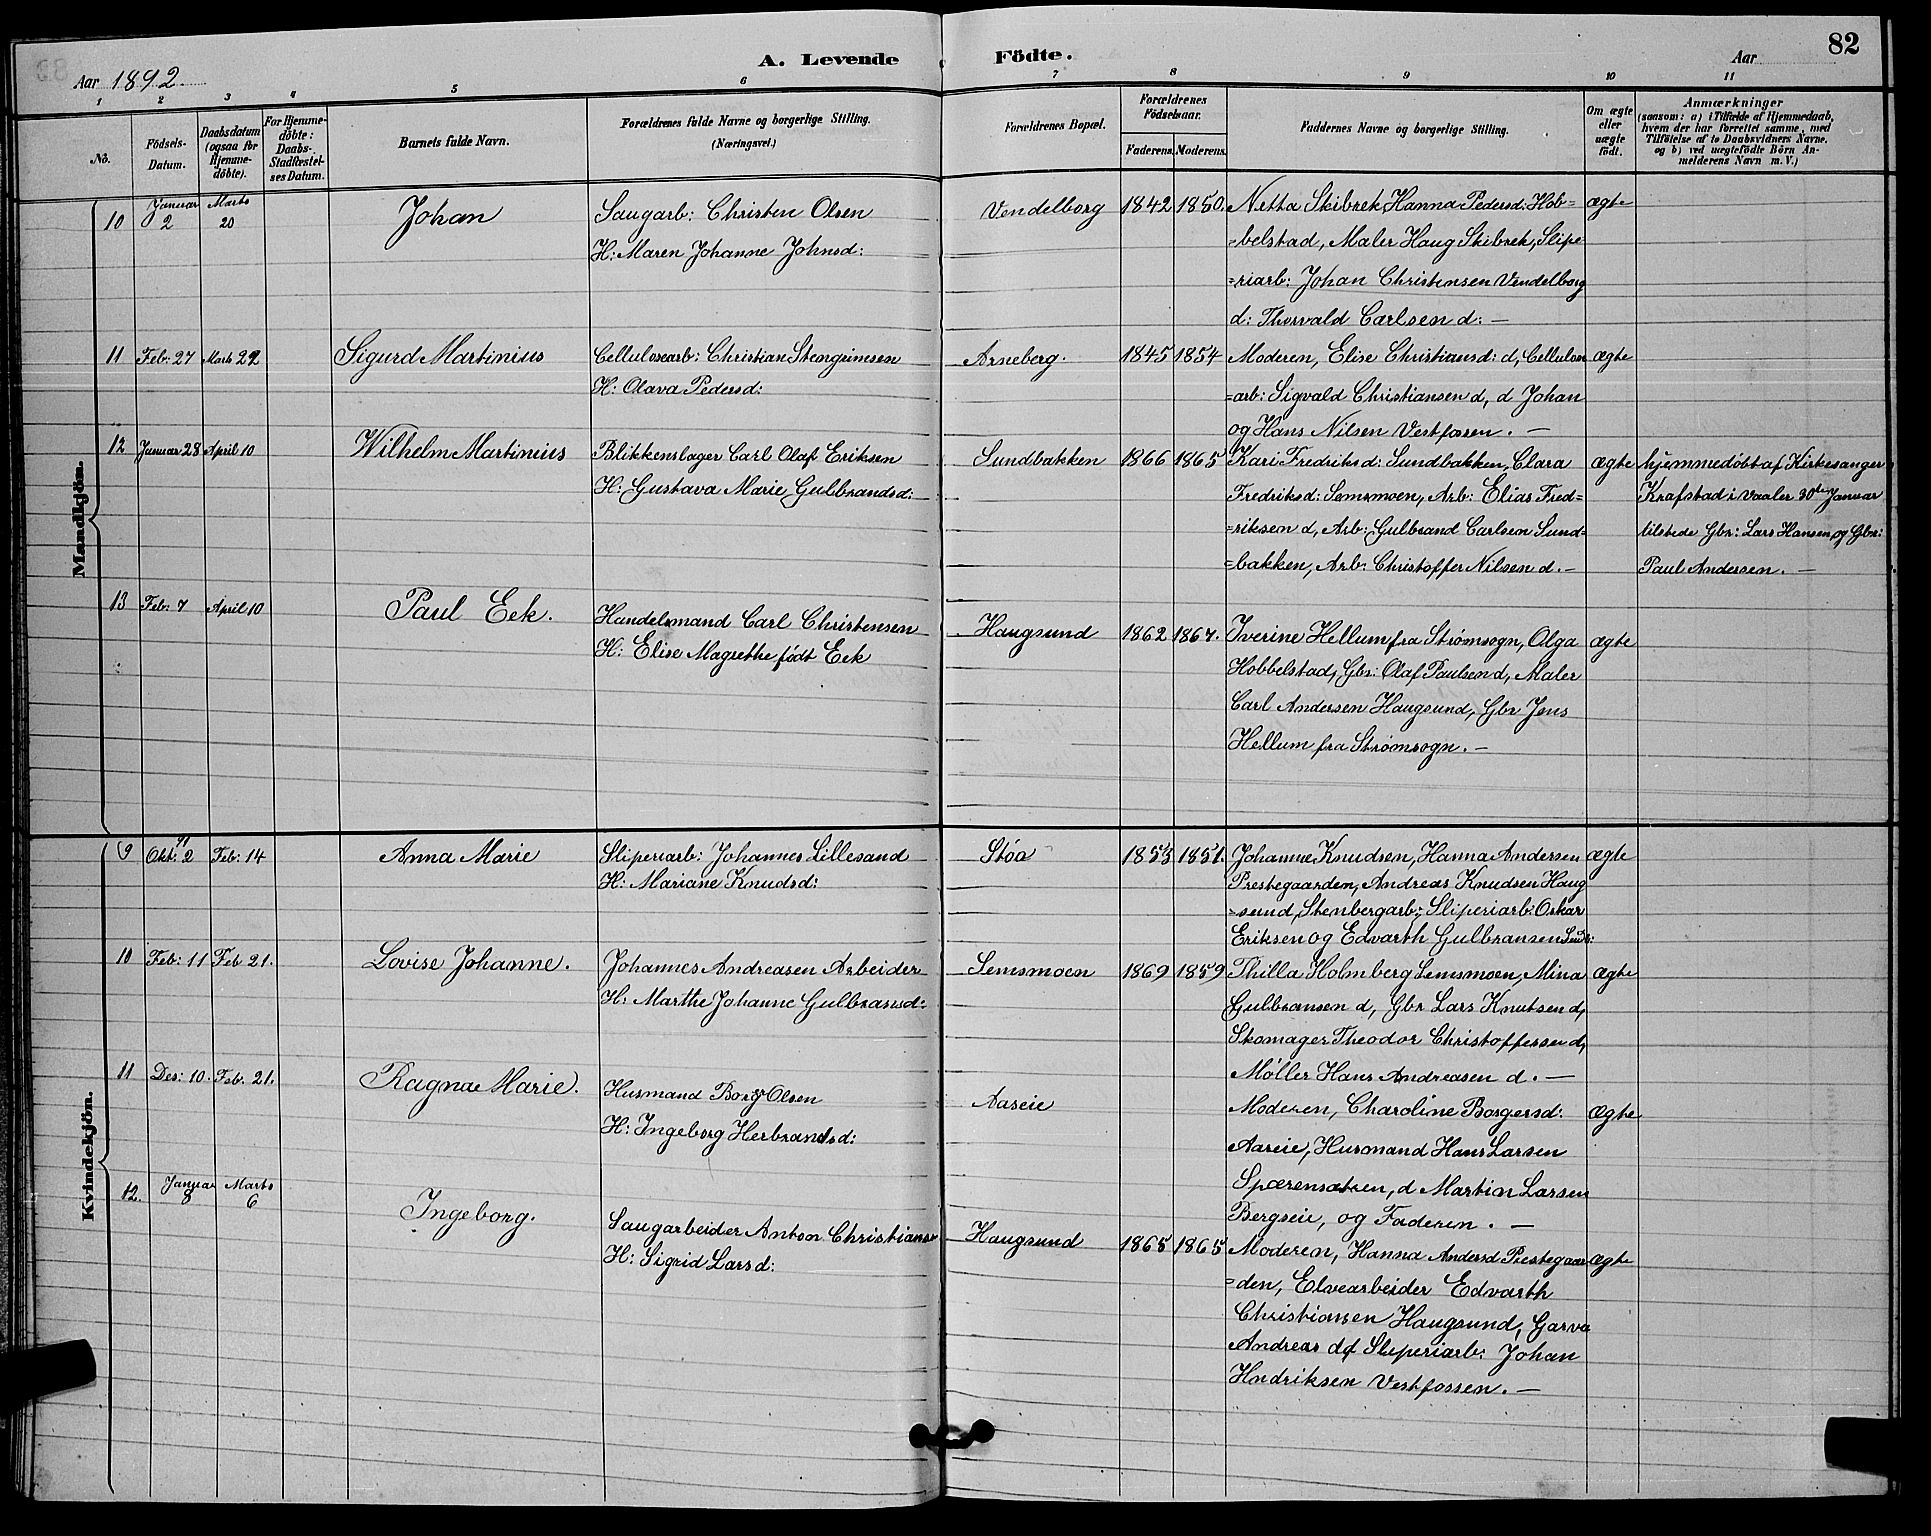 82
A. Levende Födte.
Aar 1892.
Aar
1 2 3 4 5 6 7 8 9 10 11
No.
Födsels-
Datum.
Daabsdatum
(ogsaa for
Hjemme-
döbte).
For Hjemme-
döbte:
Daabs-
Stadfæstel-
ses Datum.
Barnets fulde Navn.
Forældrenes fulde Navne og borgerlige Stilling.
(Næringsvei.)
Forældrenes Bopæl.
Forældrenes
Födselsaar.
Faderens. Moderens.
Faddernes Navne og borgerlige Stilling.
Om ægte
eller
uægte
födt.
Anmærkninger
(saasom: a) i Tilfælde af Hjemmedaab,
hvem der har forrettet samme, med
Tilföielse af to Daabsvidners Navne,
og b) ved uægtefödte Börn An-
melderens Navn m. V.)
Mandkjön.
10 Januar 2 Marts 20 Johan
Saugarb: Christen Olsen
H: Maren Johanne Johnsd:
Vendelborg 1842 1850.
Netta Skibrek, Hanna Pedersd: Hob=
=belstad, Maler Haug Skibrek, Slipe
=riarb: Johan Christensen Vendelborg
d: Thorvald Carlsen d: —
ægte
11 Feb: 27 Marts 22 Sigurd Martinius
Cellulosearb: Christian Stengrimsen
H: Olava Pedersd:
Arneberg. 1845 1854
Moderen, Elise Christiansd: d, Cellulose
=arb: Sigvald Christiansen d, d Johan
og Hans Nilsen Vestfossen. —
ægte
12 Januar 28 April 10 Wilhelm Martinius
Blikkenslager Carl Olaf Eriksen
H: Gustava Marie Gulbrandsd:
Sundbakken 1866 1865
Kari Fredriksd: Sundbakken, Clara
Fredriksd: Semsmoen, Arb: Elias Fred=
=riksen d, Arb: Gulbrand Carlsen Sund=
=bakken, Arb: Christoffer Nilsen d. —
ægte
hjemmedøbt af Kirkesanger
Krafstad i Vaaler 30te Januar
tilstede Gbr: Lars Hansen og Gbr:
Paul Andersen. —
13 Feb: 7 April 10 Paul Eek.
Handelsmand Carl Christensen
H: Elise Magrethe født Eek
Haugsund 1862 1867.
Iverine Hellum fra Strømsogn, Olga
Hobbelstad, Gbr: Olaf Paulsen d, Maler
Carl Andersen Haugsund, Gbr Jens
Hellum fra Strømsogn. —
ægte
Kvindekjön.
9 Okt: 2 91 Feb: 14 Anna Marie
Sliperiarb: Johannes Lillesand
H: Mariane Knudsd:
Støa 1853 1851.
Johanne Knudsen, Hanna Andersen
Prestegaarden, Andreas Knudsen Haug
=sund, Stenbergarb:, Sliperiarb: Oskar
Eriksen og Edvarth Gulbransen
ægte
10 Feb: 11 Feb 21. Lovise Johanne.
Johannes Andreasen Arbeider
H: Marthe Johanne Gulbransd:
Semsmoen 1869 1859
Thilla Holmberg Semsmoen, Mina
Gulbransen d, Gbr Lars Knutsen d,
Skomager Theodor Christoffersen d,
Møller Hans Andreasen d. —
ægte
11 Des: 10. Feb. 21. Ragna Marie.
Husmand Borger Olsen
H: Ingeborg Herbrandsd:
Aaseie
Moderen, Charoline Borgersd:
Aaseie, Husmand Hans Larsen
Spærensætren, d Martin Larsen
Bergseie, og Faderen. —
ægte
12. Januar 8 Marts 6 Ingeborg.
Saugarbeider Anton Christiansen
H: Sigrid Larsd:
Haugsund 1865 1865
Moderen, Hanna Andersd Prestegaar
=den, Elvearbeider Edvarth
Christiansen Haugsund, Garver
Andreas dd Sliperiarb: Johan
Hndriksen Vestfossen. —
ægte